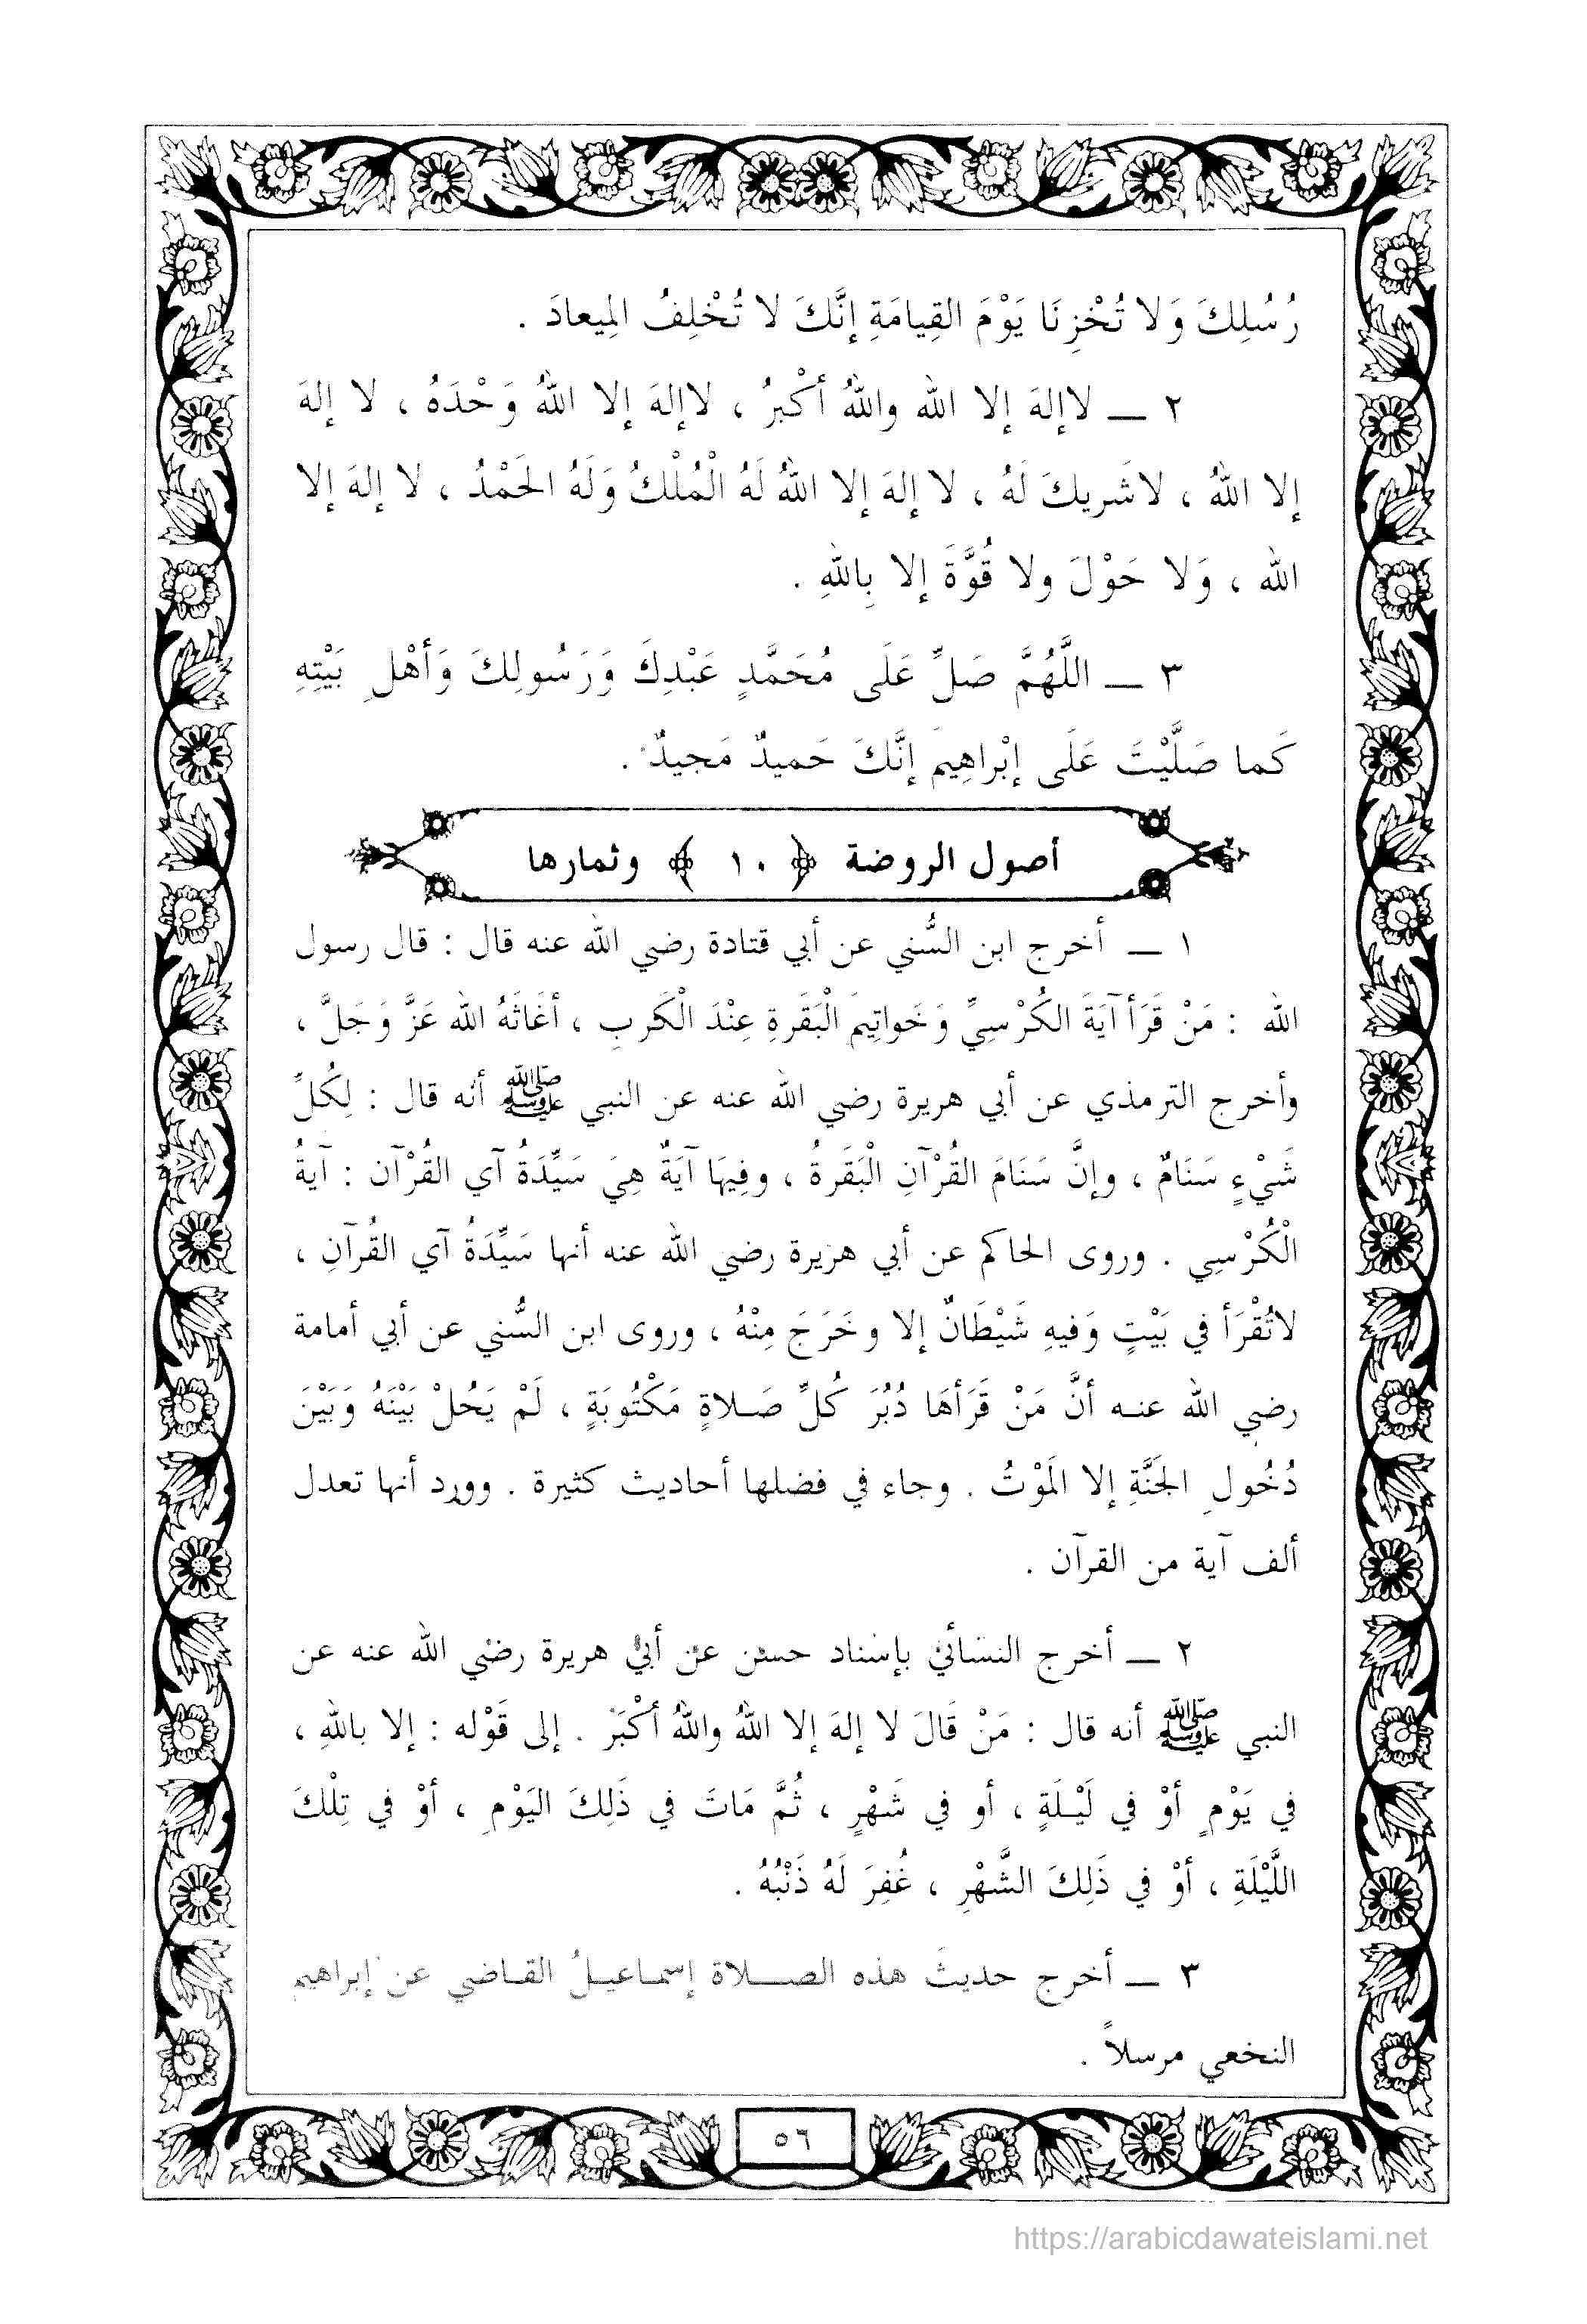 رُسُلِكَ وَلا تُخْزِنَا يَوْمَ القِيامَةِ إنَّكَ لا تُخْلِفُ المِيعادَ .
٢ ــ لاإلهَ إلا الله واللهُ أكْبرُ ، لاإلهَ إلا اللهُ وَحْدَهُ ، لا إلهَ
إلا اللهُ ، لاشَريكَ لَهُ ، لا إلهَ إلا اللهُ لَهُ الْمُلْكُ وَلَهُ الحَمْدُ ، لا إلهَ إلا
الله ، وَلا حَوْلَ ولا قُوَّةَ إلا بِاللهِ .
٣ ــ اللَّهُمَّ صَلِّ عَلَى مُحَمَّدٍ عَبْدِكَ وَرَسُولِكَ وَأهْلِ بَيْتِهِ
كَما صَلَّيْتَ عَلَى إبْراهِيمَ إنَّكَ حَميدٌ مَجيدٌ .
أصول الروضة ﴿ ١٠ ﴾ وثمارها
١ ــ أخرج ابن السُّني عن أبي قتادة رضي الله عنه قال : قال رسول
الله : مَنْ قَرَأ آيَةَ الكُرْسِيِّ وَخَواتِيمَ الْبَقَرةِ عِنْدَ الْكَربِ ، أغَاثَهُ الله عَزَّ وَجَلَّ ،
وأخرج الترمذي عن أبي هريرة رضي الله عنه عن النبي ﷺ أنه قال : لِكُلِّ
شَيْءٍ سَنَامٌ ، وإنَّ سَنَامَ القُرْآنِ الْبَقَرةُ ، وفِيهَا آيَةٌ هِيَ سَيِّدَةُ آي القُرْآن : آيةُ
الْكُرْسِي . وروى الحاكم عن أبي هريرة رضي الله عنه أنها سَيِّدَةُ آي القُرآنِ ،
لاتُقْرَأ في بَيْتٍ وَفيهِ شَيْطَانٌ إلا وخَرَجَ مِنْهُ ، وروى ابن السُّني عن أبي أمامة
رضي الله عنـه أنَّ مَنْ قَرَأهَا دُبُرَ كُلِّ صَـلاةٍ مَكْتُوبَةٍ ، لَمْ يَحُلْ بَيْنَهُ وَبَيْنَ
دُخُولِ الجَنَّةِ إلا المَوْتُ . وجاء في فضلها أحاديث كثيرة . وورد أنها تعدل
ألف آية من القرآن .
٢ ــ أخرج النسائي بإسناد حسن عن أبي هريرة رضي الله عنه عن
النبي ﷺ أنه قال : مَنْ قَالَ لا إلهَ إلا اللهُ واللهُ أكْبَرْ . إلى قَوْله : إلا باللهِ ،
في يَوْمٍ أوْ في لَيْـلَةٍ ، أو في شَهْرٍ ، ثُمَّ مَاتَ في ذَلِكَ اليَوْمِ ، أوْ في تِلْكَ
اللَّيْلَةِ ، أوْ في ذَلِكَ الشَّهْرِ ، غُفِرَ لَهُ ذَنْبُهُ .
٣ ــ أخرج حديثَ هذه الصـــلاة إسمـاعيـلُ القـاضي عن إبراهيم
النخعي مرسلاً .
٥٦
https://arabicdawateislami.net